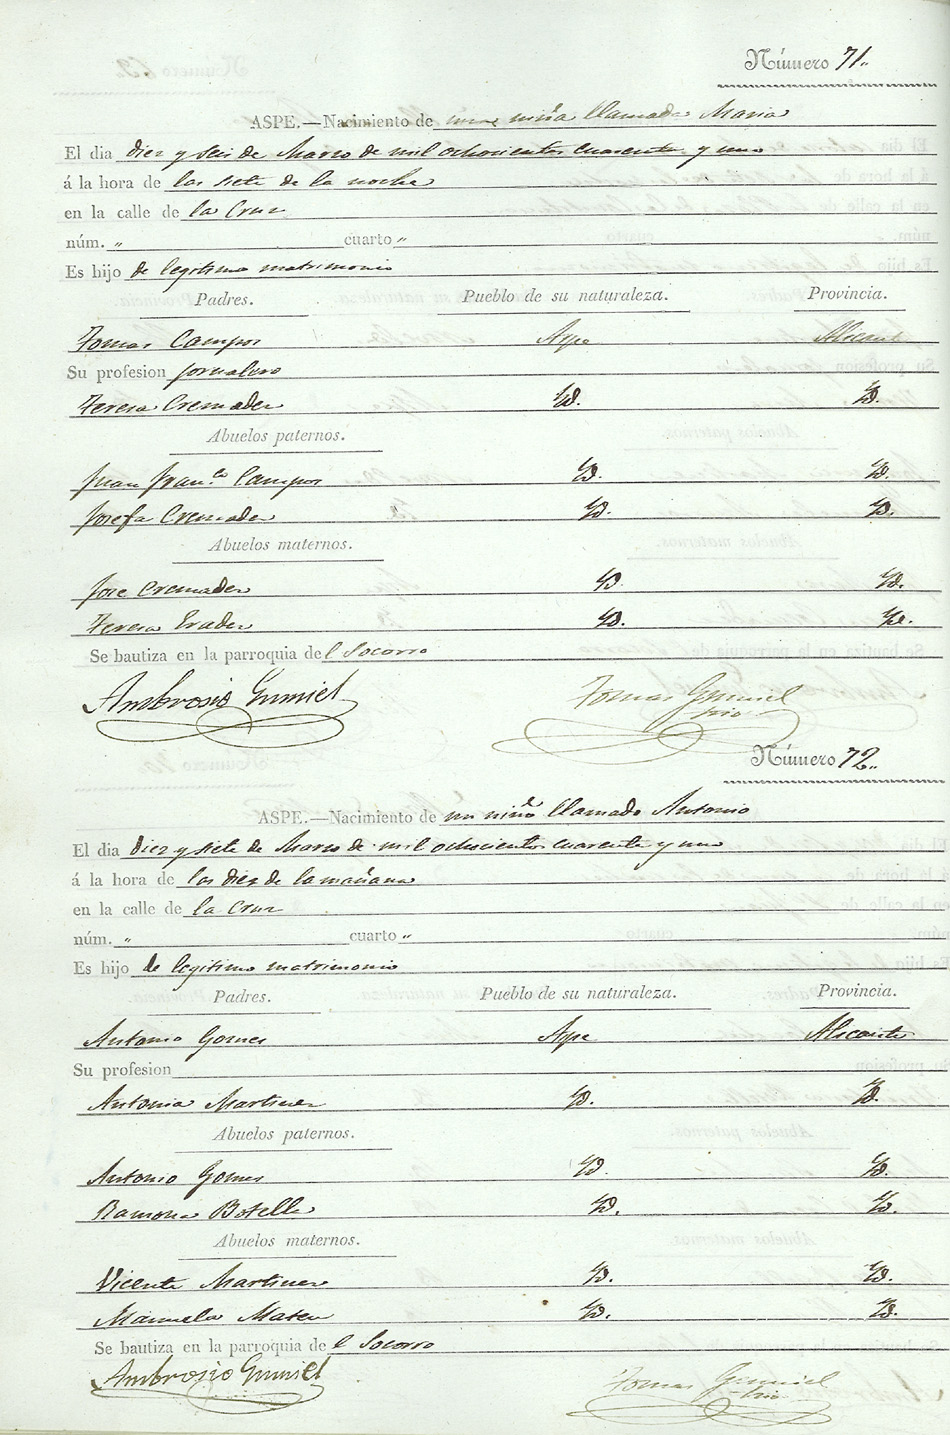 Número 71.
ASPE.—Nacimiento de una niña llamada Maria
El dia diez y seis de Marzo de mil ochocientos cuarenta y uno
á la hora de las siete de la noche
en la calle de la Cruz
núm. " cuarto "
Es hijo de legitimo matrimonio
Padres. Pueblo de su naturaleza. Provincia.
Tomas Campos Aspe Alicante
Su profesion jornalero
Teresa Cremades Yd. Yd.
Abuelos paternos.
Juan Fran.co Campos Yd. Yd.
Josefa Cremades Yd. Yd.
Abuelos maternos.
Jose Cremades Yd. Yd.
Teresa Yd. Yd.
Se bautiza en la parroquia del Socorro
Ambrosio Gumiel Tomas Gumiel
Srio
Número 72.
ASPE.—Nacimiento de un niño llamado Antonio
El dia diez y siete de Marzo de mil ochocientos cuarenta y uno
á la hora de las diez de la mañana
en la calle de la Cruz
núm. " cuarto "
Es hijo de legitimo matrimonio
Padres. Pueblo de su naturaleza. Provincia.
Antonio Gomes Aspe Alicante
Su profesion
Antonia Martinez Yd. Yd.
Abuelos paternos.
Antonio Gomes Yd. Yd.
Ramona Botella Yd. Yd.
Abuelos maternos.
Vicente Martinez Yd. Yd.
Manuela Mateu Yd. Yd.
Se bautiza en la parroquia del Socorro
Ambrosio Gumiel Tomas Gumiel
Srio